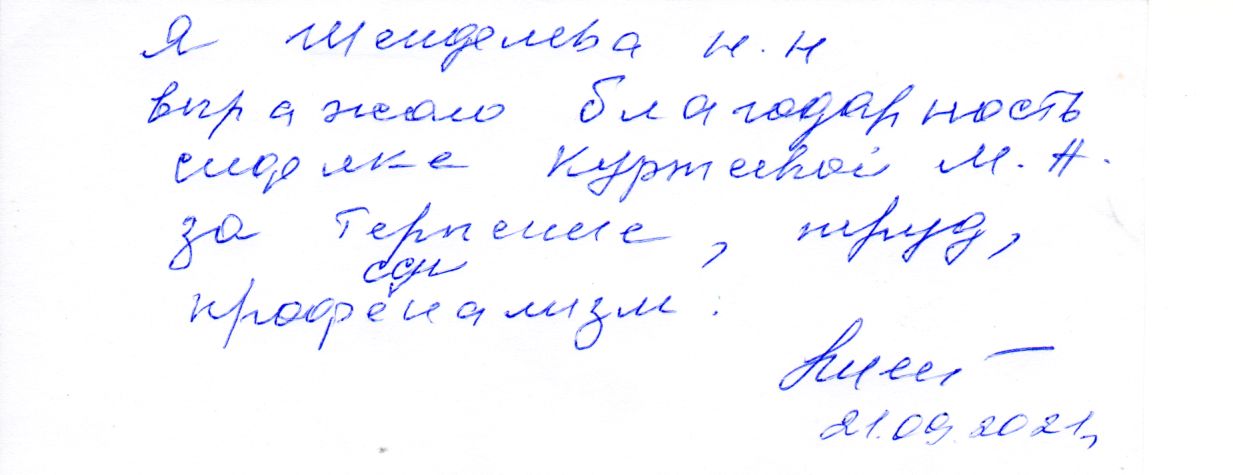 Я Шенделева Н.Н
выражаю благодарность
сиделке Куржеевой М.А.
за терпение, труд,
професси
онализм.
21.09.2021г